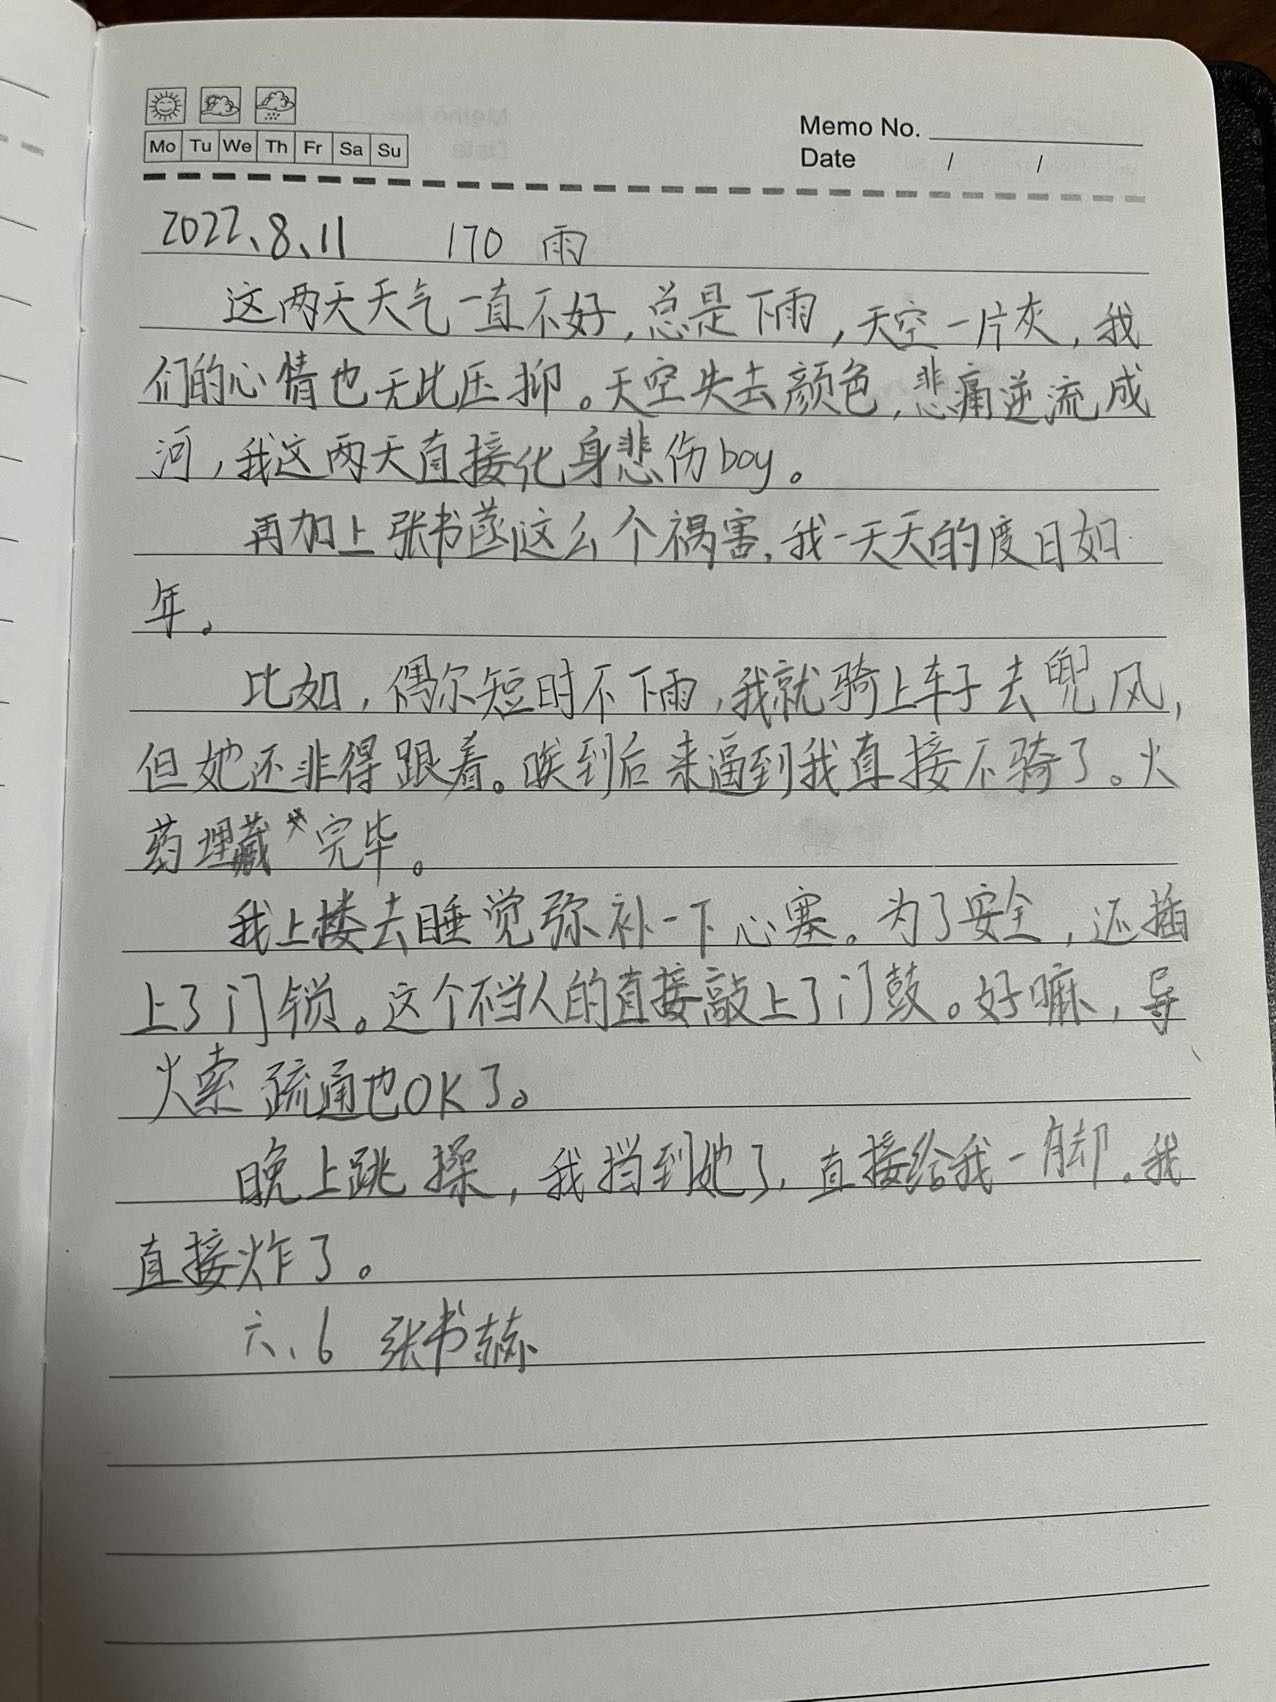 Memo No.
Mo Tu We Th Fr Sa Su
Date / /
2022、8、11 170 雨
这两天天气一直不好，总是下雨，天空一片灰，我
们的心情也无比压抑。天空失去颜色，悲痛逆流成
河，我这两天直接化身悲伤boy。
再加上张书菡这么个祸害，我一天天的度日如
年。
比如，偶尔短时不下雨，我就骑上车子去兜风，
但她还非得跟着。唉到后来逼到我直接不骑了。火
药埋藏完毕。
我上楼去睡觉弥补一下心塞。为了安全，还插
上了门锁。这个不当人的直接敲上了门鼓。好嘛，导
火索疏通也OK了。
晚上跳操，我挡到她了，直接给我一脚。我
直接炸了。
六、6 张书赫